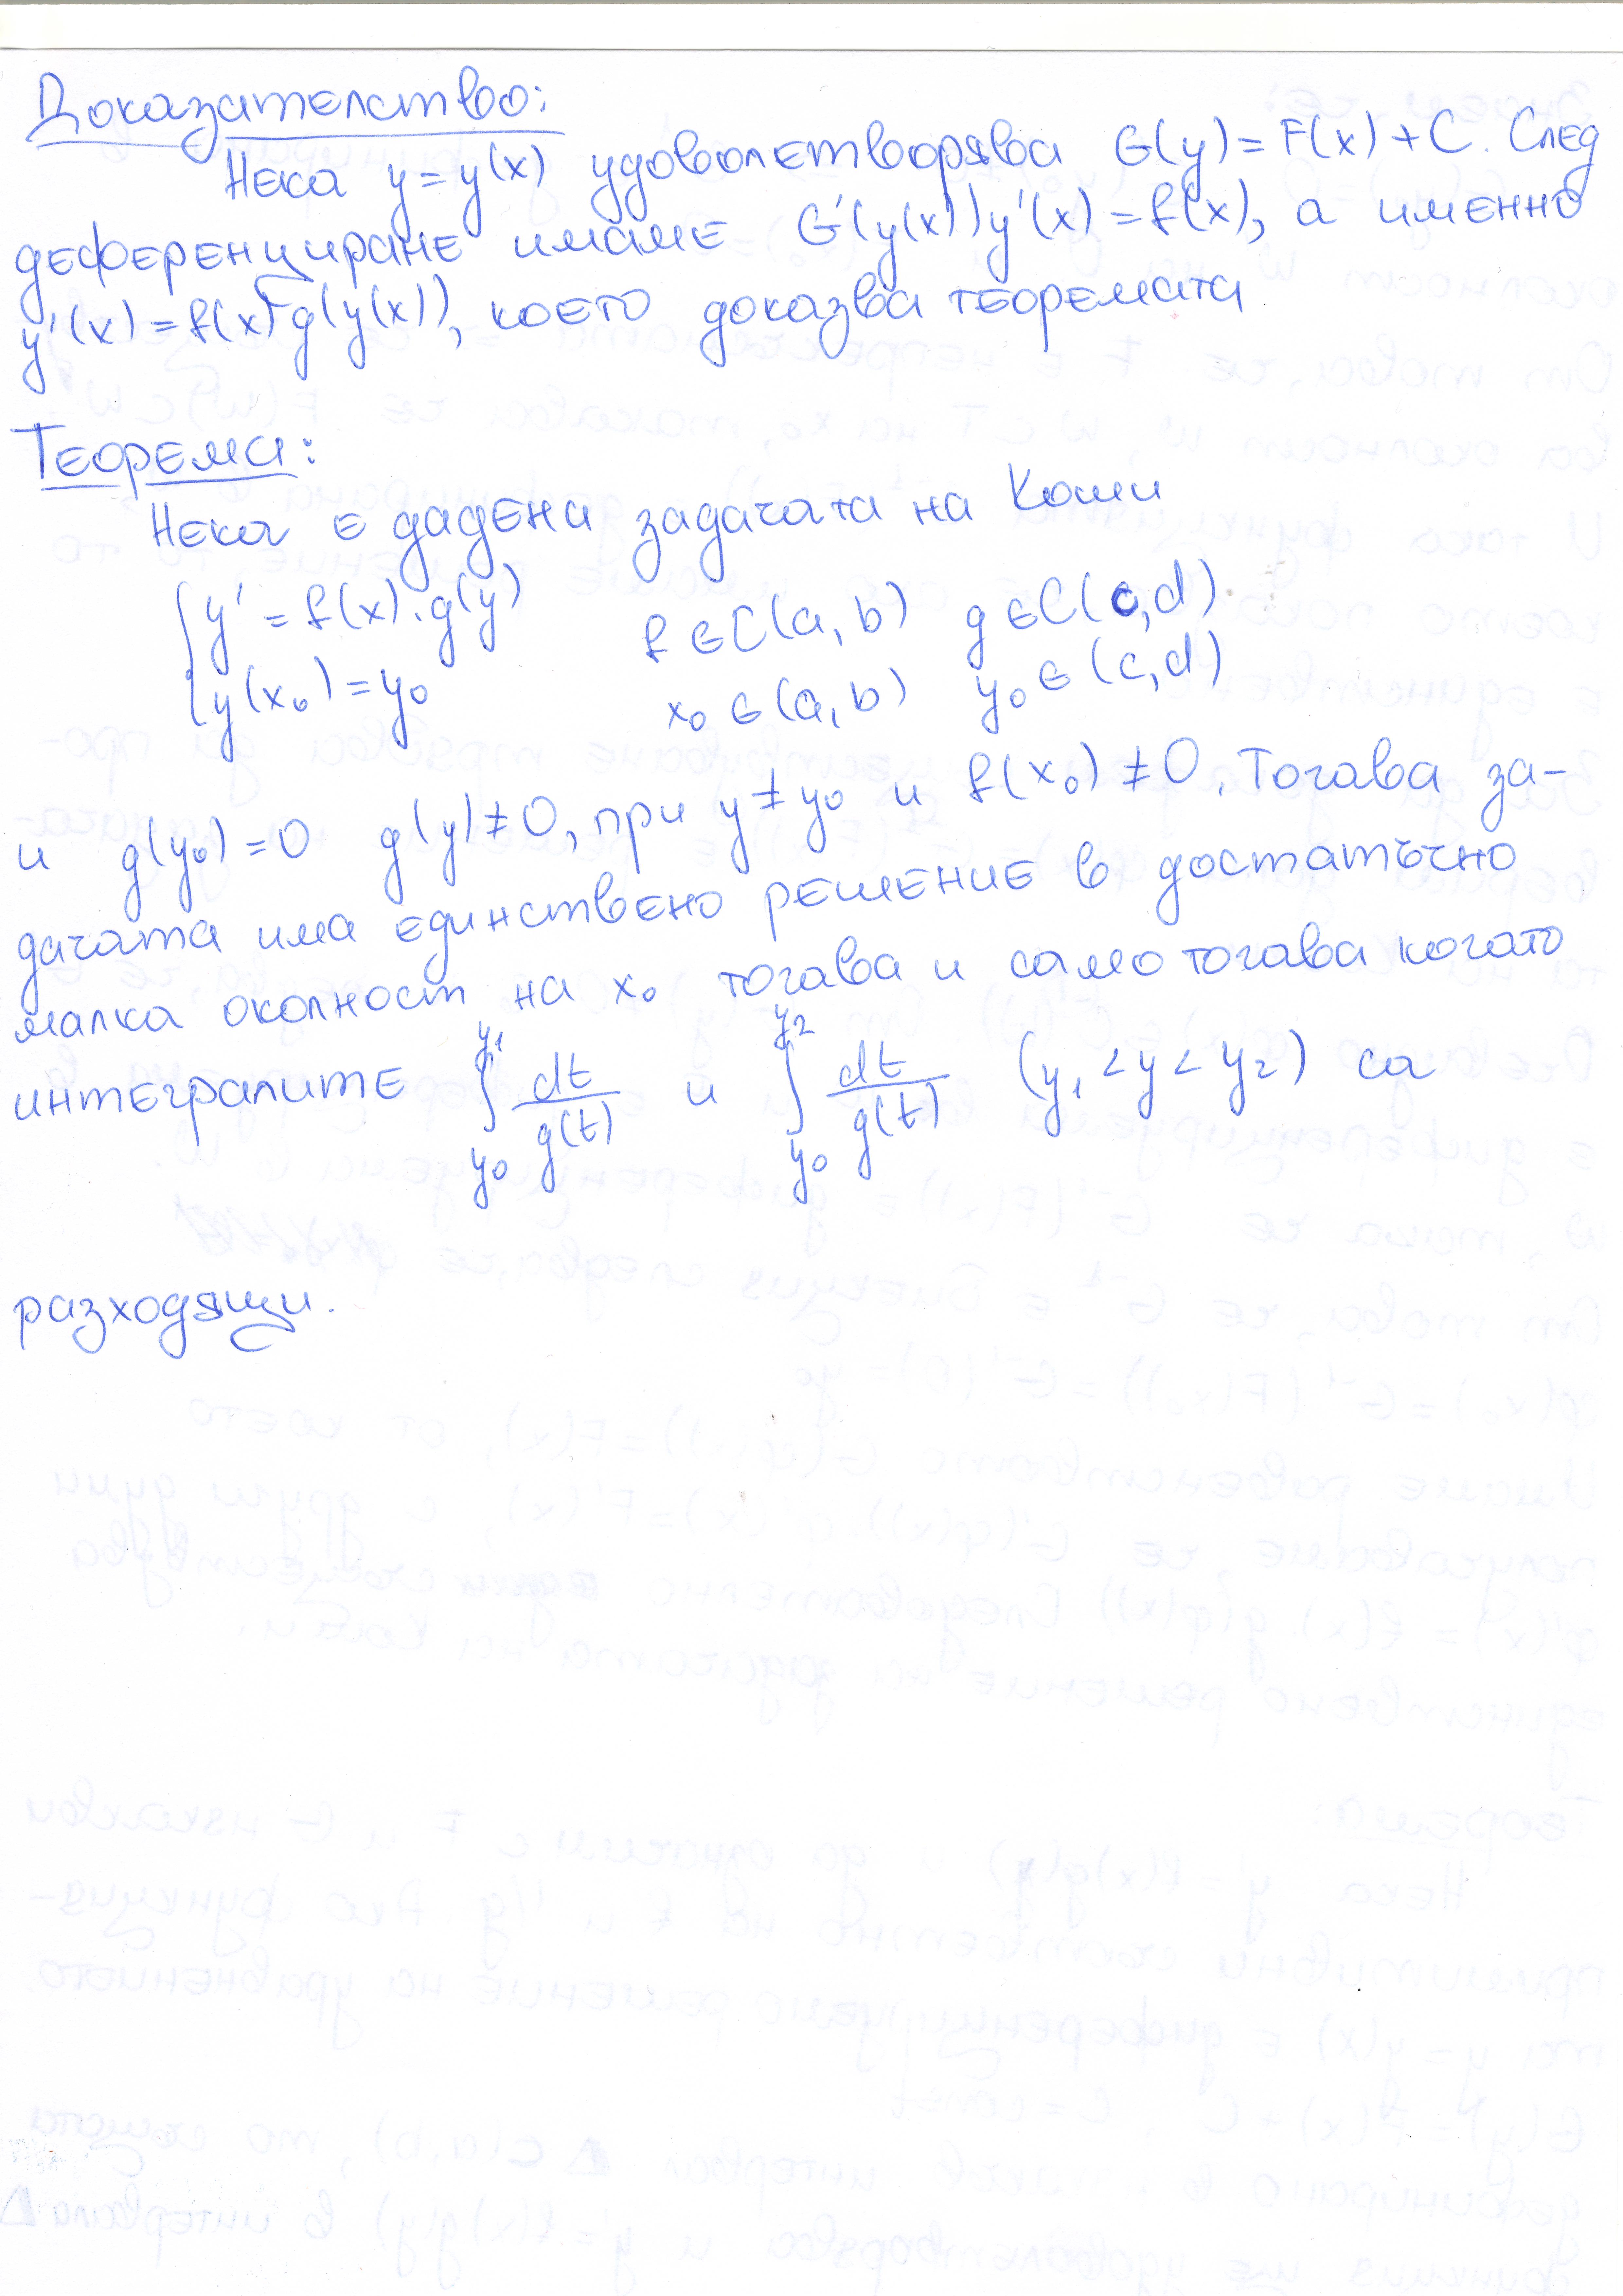 Доказателство:
Нека y = y(x) удовлетворява G(y) = F(x) + C. След
деференциране имаме G'(y(x))y'(x) = f(x), а именно
y'(x) = f(x) g(y(x)), което доказва теоремата.
Теорема:
Нека е дадена задачата на Коши
{ y' = f(x).g(y) f ∈ C(a, b) g ∈ C(c, d)
{ y(x₀) = y₀ x₀ ∈ (a, b) y₀ ∈ (c, d)
и g(y₀) = 0 g(y) ≠ 0, при y ≠ y₀ и f(x₀) ≠ 0. Тогава за-
дачата има единствено решение в достатъчно
малка околност на x₀ тогава и само тогава когато
интегралите ∫_{y₀}^{y₁} dt/g(t) и ∫_{y₀}^{y₂} dt/g(t) (y₁ < y < y₂) са
разходящи.